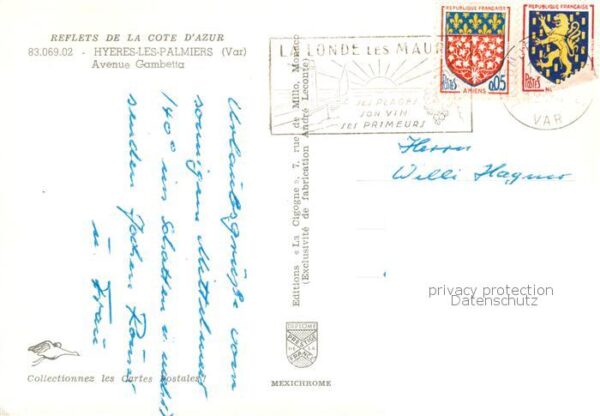 REFLETS DE LA COTE D'AZUR
83.069.02 - HYERES-LES-PALMIERS (Var)
Avenue Gambetta
Urlaubsgrüße vom
sonnigen Mittelmeer
140° im Schatten u.
senden Jochen
u. Frau
Collectionnez les Cartes Postales!
Editions « La Cigogne », 7, rue de Millo, Monaco
(Exclusivité de fabrication André Leconte)
DIPLOME
PRESTIGE
DE LA
FRANCE
MEXICHROME
LA LONDE LES MAUR
SES PLAGES
SON VIN
SES PRIMEURS
REPUBLIQUE FRANÇAISE
POSTES
0,05
AMIENS
REPUBLIQUE FRANÇAISE
POSTES
VAR
Herrn
Willi Hagner
privacy protection
Datenschutz